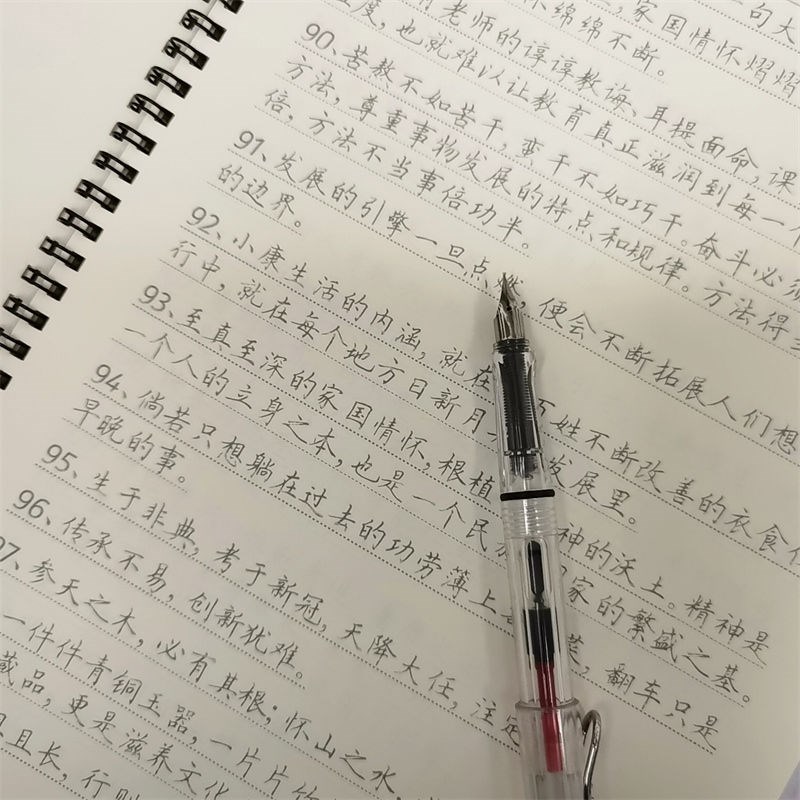 一句大
家国情怀熠熠
绵绵不断。
有老师的谆谆教诲、耳提面命,课
度,也就难以让教育真正滋润到每一个
90、苦熬不如苦干,蛮干不如巧干。奋斗必须
方法,尊重事物发展的特点和规律。方法得当
倍,方法不当事倍功半。
91、发展的引擎一旦点燃,便会不断拓展人们想
的边界。
92、小康生活的内涵,就在 百姓不断改善的衣食住
行中,就在每个地方日新月 发展里。
93、至真至深的家国情怀,根植 神的沃土。精神是
一个人的立身之本,也是一个民族 国家的繁盛之基。
94、倘若只想躺在过去的功劳簿上 ,翻车只是
早晚的事。
95、生于非典,考于新冠,天降大任,注定
96、传承不易,创新犹难。
97、参天之木,必有其根;怀山之水,
一件件青铜玉器,一片片竹
藏品,更是滋养文化
且长,行则